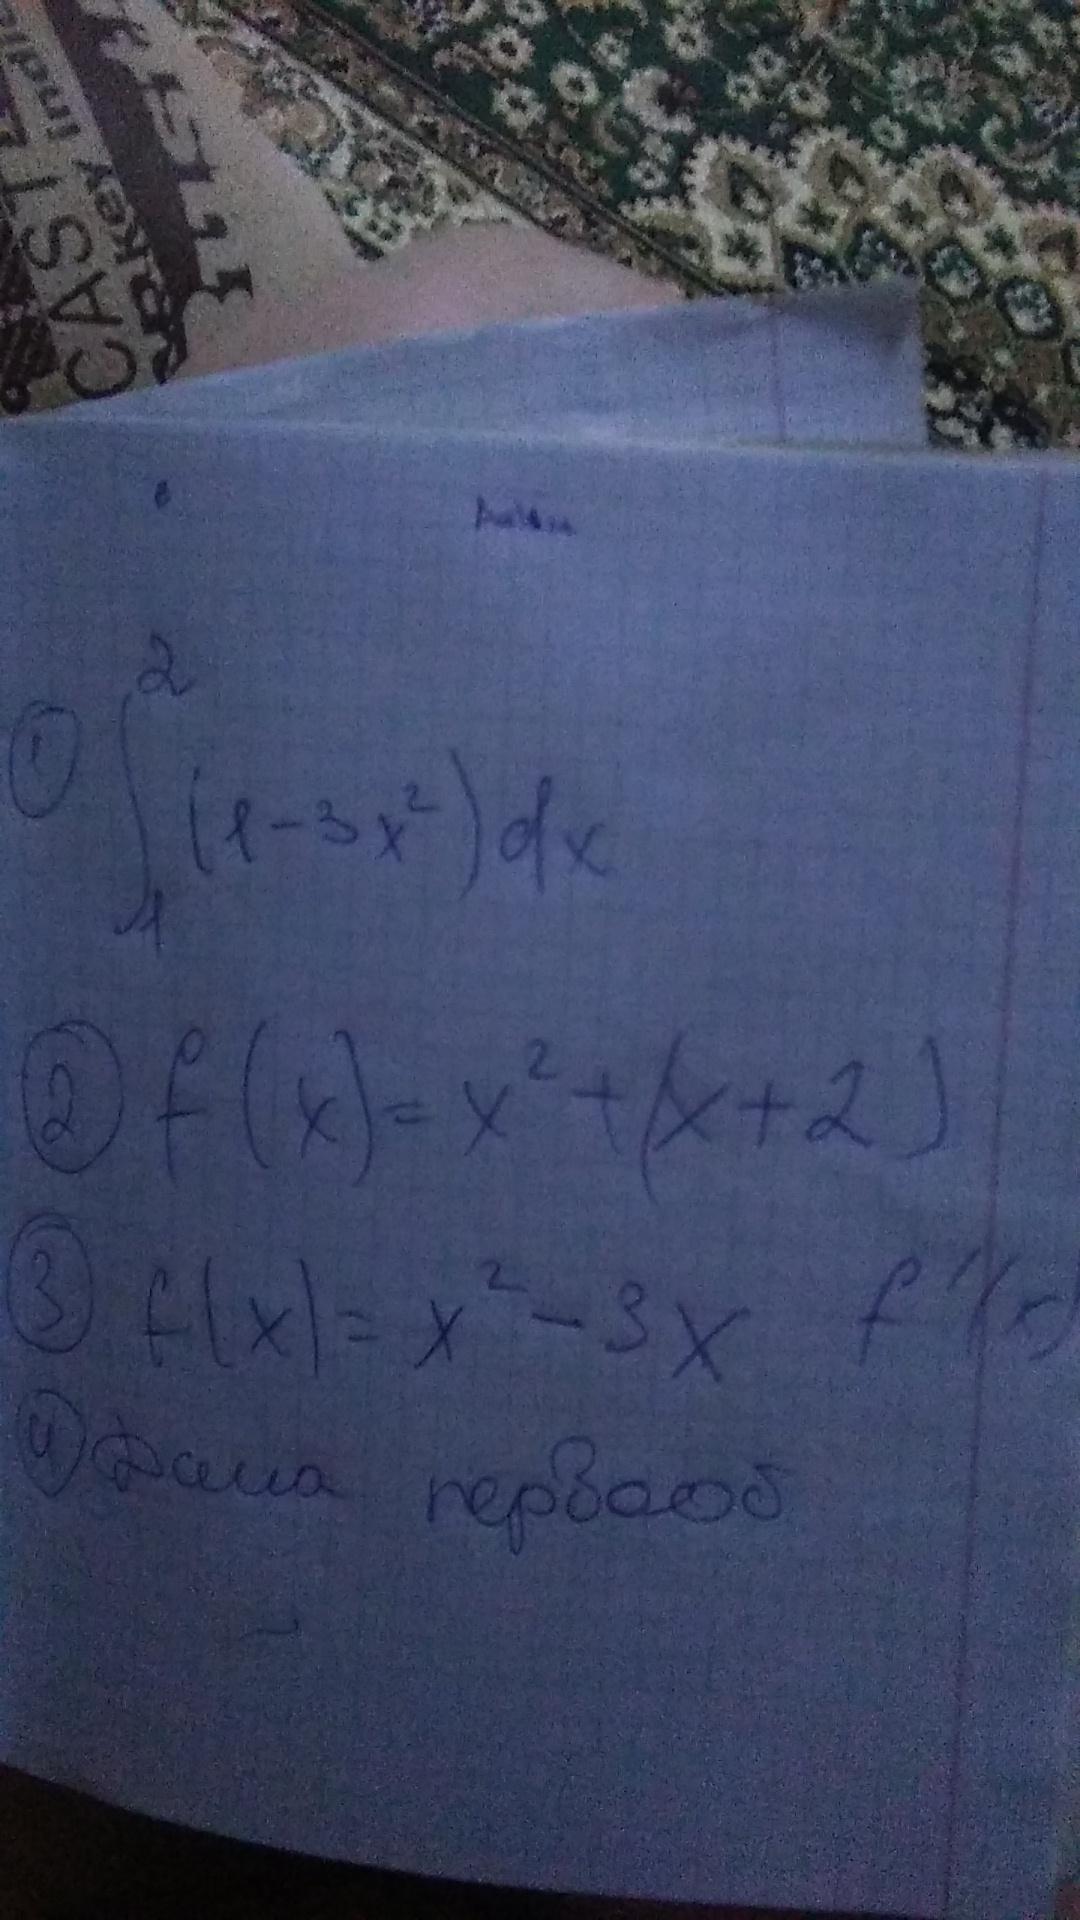 CASTLE
① ∫₁² (1-3x²)dx
② f(x)=x²+(x+2)
③ f(x)=x²-3x f'(x)
④ первооб